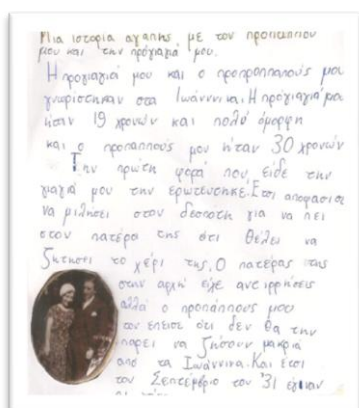 Μια ιστορια αγαπης με τον προπαππου
μου και την προγιαγιά μου.
Η προγιαγιά μου και ο προπροππαπούς μου
γνωρίστηκαν στα Ιωάννινα. Η προγιαγιά μου
ήταν 19 χρονών και πολύ όμορφη
και ο προπαππούς μου ήταν 30 χρονών
Την πρώτη φορά που είδε την
γιαγιά μου την ερωτεύτηκε. Ετσι αποφάσισε
να μιλήσει στον δεσπότη για να πει
στον πατέρα της ότι θέλει να
ζητήσει το χέρι της. Ο πατέρας της
στην αρχή είχε αντιρρήσεις
αλλά ο προπάππους μου
τον έπεισε ότι δεν θα την
πάρει να ζήσουν μακριά
από τα Ιωάννινα. Και έτσι
τον Σεπτέμβριο του '31 έγιναν